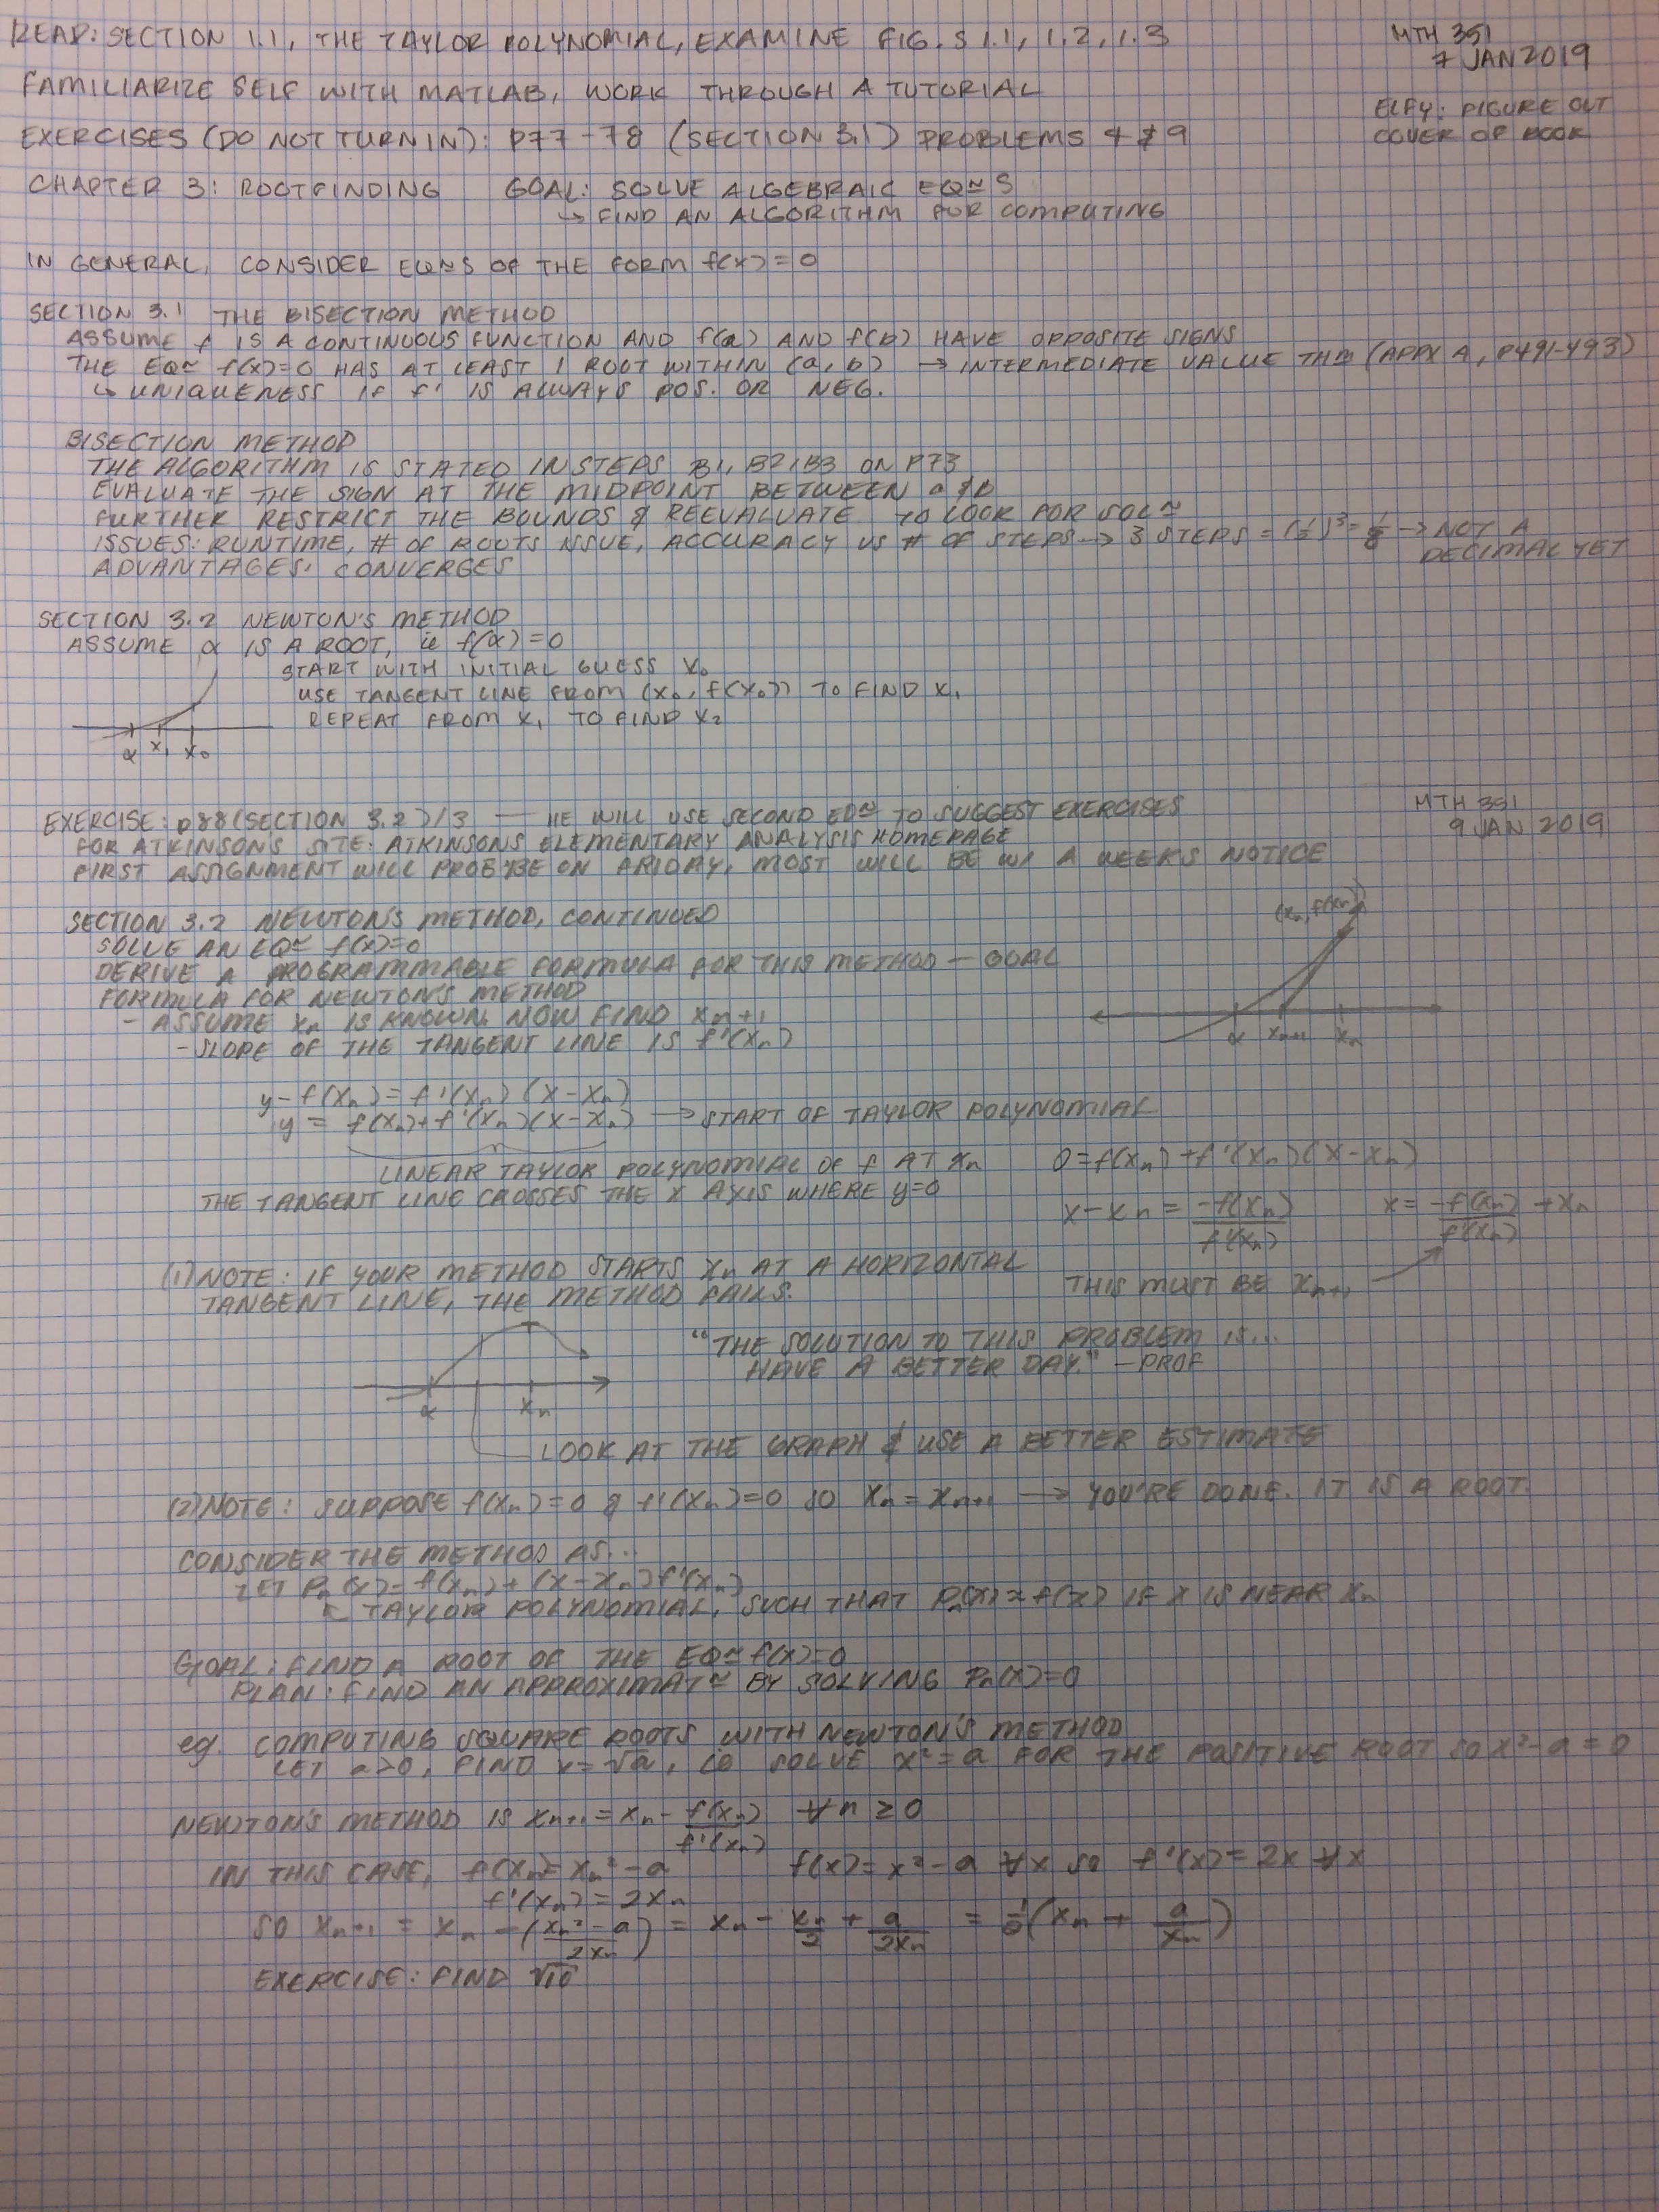 READ: SECTION 1.1, THE TAYLOR POLYNOMIAL, EXAMINE FIG.S 1.1, 1.2, 1.3
MTH 351
7 JAN 2019
FAMILIARIZE SELF WITH MATLAB, WORK THROUGH A TUTORIAL
ELFY: FIGURE OUT
COVER OF BOOK
EXERCISES (DO NOT TURN IN): P77-78 (SECTION 3.1) PROBLEMS 4 & 9
CHAPTER 3: ROOTFINDING GOAL: SOLVE ALGEBRAIC EQ~S
↳ FIND AN ALGORITHM FOR COMPUTING
IN GENERAL, CONSIDER EQ~S OF THE FORM f(x)=0
SECTION 3.1 THE BISECTION METHOD
ASSUME f IS A CONTINUOUS FUNCTION AND f(a) AND f(b) HAVE OPPOSITE SIGNS
THE EQ~ f(x)=0 HAS AT LEAST 1 ROOT WITHIN (a, b) → INTERMEDIATE VALUE THM (APPX A, P491-493)
↳ UNIQUENESS IF f' IS ALWAYS POS. OR NEG.
BISECTION METHOD
THE ALGORITHM IS STATED IN STEPS B1, B2, B3 ON P73
EVALUATE THE SIGN AT THE MIDPOINT BETWEEN a & b
FURTHER RESTRICT THE BOUNDS & REEVALUATE TO LOOK FOR SOL~
ISSUES: RUNTIME, # OF ROOTS ISSUE, ACCURACY VS # OF STEPS → 3 STEPS = (1/2)³ = 1/8 → NOT A
DECIMAL YET
ADVANTAGES: CONVERGES
SECTION 3.2 NEWTON'S METHOD
ASSUME α IS A ROOT, ie f(α)=0
START WITH INITIAL GUESS x₀
USE TANGENT LINE FROM (x₀, f(x₀)) TO FIND x₁
REPEAT FROM x₁ TO FIND x₂
α x₁ x₀
MTH 351
9 JAN 2019
EXERCISE: p88(SECTION 3.2)/3 — HE WILL USE SECOND ED~ TO SUGGEST EXERCISES
FOR ATKINSON'S SITE: ATKINSONS ELEMENTARY ANALYSIS HOMEPAGE
FIRST ASSIGNMENT WILL PROB'Y BE ON FRIDAY, MOST WILL BE W/ A WEEKS NOTICE
SECTION 3.2 NEWTON'S METHOD, CONTINUED
(xₙ, f(xₙ))
SOLVE AN EQ~ f(x)=0
DERIVE A PROGRAMMABLE FORMULA FOR THIS METHOD — GOAL
FORMULA FOR NEWTON'S METHOD
- ASSUME xₙ IS KNOWN. NOW FIND xₙ₊₁
- SLOPE OF THE TANGENT LINE IS f'(xₙ)
α xₙ₊₁ xₙ
y - f(xₙ) = f'(xₙ)(x-xₙ)
y = f(xₙ)+f'(xₙ)(x-xₙ) → START OF TAYLOR POLYNOMIAL
LINEAR TAYLOR POLYNOMIAL OF f AT xₙ
0=f(xₙ)+f'(xₙ)(x-xₙ)
THE TANGENT LINE CROSSES THE X AXIS WHERE y=0
x-xₙ = -f(xₙ)/f'(xₙ) x = -f(xₙ)/f'(xₙ) + xₙ
(1) NOTE: IF YOUR METHOD STARTS xₙ AT A HORIZONTAL
TANGENT LINE, THE METHOD FAILS.
THIS MUST BE xₙ₊₁
"THE SOLUTION TO THIS PROBLEM IS...
HAVE A BETTER DAY." -PROF
α xₙ
LOOK AT THE GRAPH & USE A BETTER ESTIMATE
(2) NOTE: SUPPOSE f(xₙ)=0 & f'(xₙ)=0 so xₙ=xₙ₊₁ → YOU'RE DONE. IT IS A ROOT.
CONSIDER THE METHOD AS...
LET Pₙ(x)=f(xₙ)+(x-xₙ)f'(xₙ)
TAYLOR POLYNOMIAL, SUCH THAT Pₙ(x)≈f(x) IF X IS NEAR xₙ
GOAL: FIND A ROOT OF THE EQ~ f(x)=0
PLAN: FIND AN APPROXIMAT~ BY SOLVING Pₙ(x)=0
eg. COMPUTING SQUARE ROOTS WITH NEWTON'S METHOD
LET a>0, FIND r=√a, SO SOLVE x²=a FOR THE POSITIVE ROOT so x²-a=0
NEWTON'S METHOD IS xₙ₊₁ = xₙ - f(xₙ)/f'(xₙ) ∀n ≥ 0
IN THIS CASE, f(xₙ)=xₙ²-a f(x)=x²-a ∀x so f'(x)=2x ∀x
f'(xₙ)=2xₙ
SO xₙ₊₁ = xₙ - ((xₙ²-a)/2xₙ) = xₙ - xₙ/2 + a/2xₙ = 1/2(xₙ + a/xₙ)
EXERCISE: FIND √10